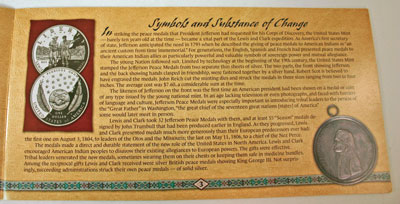 Symbols and Substance of Change
In striking the peace medals that President Jefferson had requested for his Corps of Discovery, the United States Mint
— barely ten years old at the time — became a vital part of the Lewis and Clark expedition. As America's first secretary
of state, Jefferson anticipated the need in 1793 when he described the giving of peace medals to American Indians as "an
ancient custom from time immemorial." For generations, the English, Spanish and French had presented peace medals to
their American Indian allies as particularly powerful and valuable symbols of sovereign power and mutual allegiance.
The young Nation followed suit. Limited by technology at the beginning of the 19th century, the United States Mint
stamped the Jefferson Peace Medals from two separate thin sheets of silver. The two parts, the front showing Jefferson
and the back showing hands clasped in friendship, were fastened together by a silver band. Robert Scot is believed to
have engraved the medals; John Reich cut the master dies and struck the medals in three sizes ranging from two to four
inches. The average cost was $7.60, a considerable sum at the time.
The likeness of Jefferson on the front was the first time an American president had been shown on a medal or coin
of any type issued by the young national mint. In an age lacking television or even photographs, and faced with barriers
of language and culture, Jefferson Peace Medals were especially important to introducing tribal leaders to the person of
the "Great Father" in Washington, "the great chief of the seventeen great nations of America"
some would later meet in person.
Lewis and Clark took 32 Jefferson Peace Medals with them, and at least 55 "season" medals de-
signed by John Trumbull that had been produced earlier in England. As they progressed, Lewis
and Clark presented medals much more generously than their European predecessors ever had:
The first one on August 3, 1804, to leaders of the Oto and the Missouri; the last on May 11, 1806, to a chief of the Nez Perce.
The medals made a direct and durable statement of the new role of the United States in North America. Lewis and Clark
encouraged American Indian peoples to disavow their existing allegiances to European powers. The gifts were effective.
Tribal leaders venerated the new medals, sometimes wearing them on their chests or keeping them safe in medicine bundles.
Among the reciprocal gifts Lewis and Clark received were silver British peace medals showing King George III. Not surpris-
ingly, succeeding administrations struck their own peace medals — of solid silver.
3